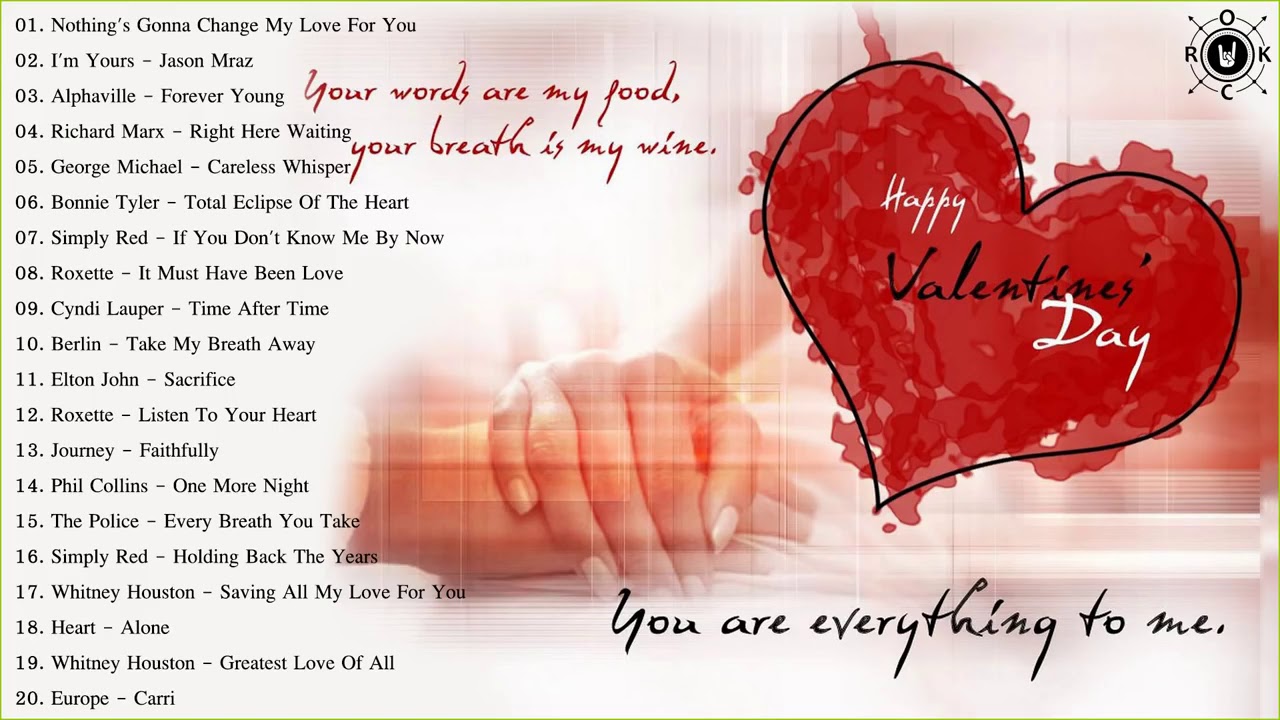 01. Nothing's Gonna Change My Love For You
02. I'm Yours – Jason Mraz
03. Alphaville – Forever Young
04. Richard Marx – Right Here Waiting
05. George Michael – Careless Whisper
06. Bonnie Tyler – Total Eclipse Of The Heart
07. Simply Red – If You Don't Know Me By Now
08. Roxette – It Must Have Been Love
09. Cyndi Lauper – Time After Time
10. Berlin – Take My Breath Away
11. Elton John – Sacrifice
12. Roxette – Listen To Your Heart
13. Journey – Faithfully
14. Phil Collins – One More Night
15. The Police – Every Breath You Take
16. Simply Red – Holding Back The Years
17. Whitney Houston – Saving All My Love For You
18. Heart – Alone
19. Whitney Houston – Greatest Love Of All
20. Europe – Carri
Your words are my food,
your breath is my wine.
Happy
Valentines'
Day
You are everything to me.
O
R K
C